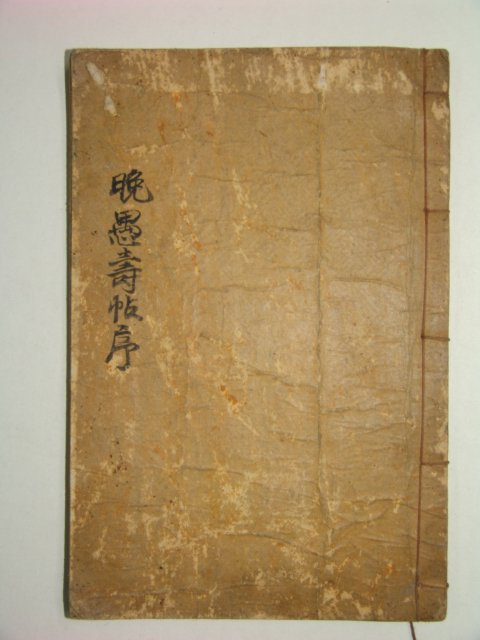 晚愚壽帖序